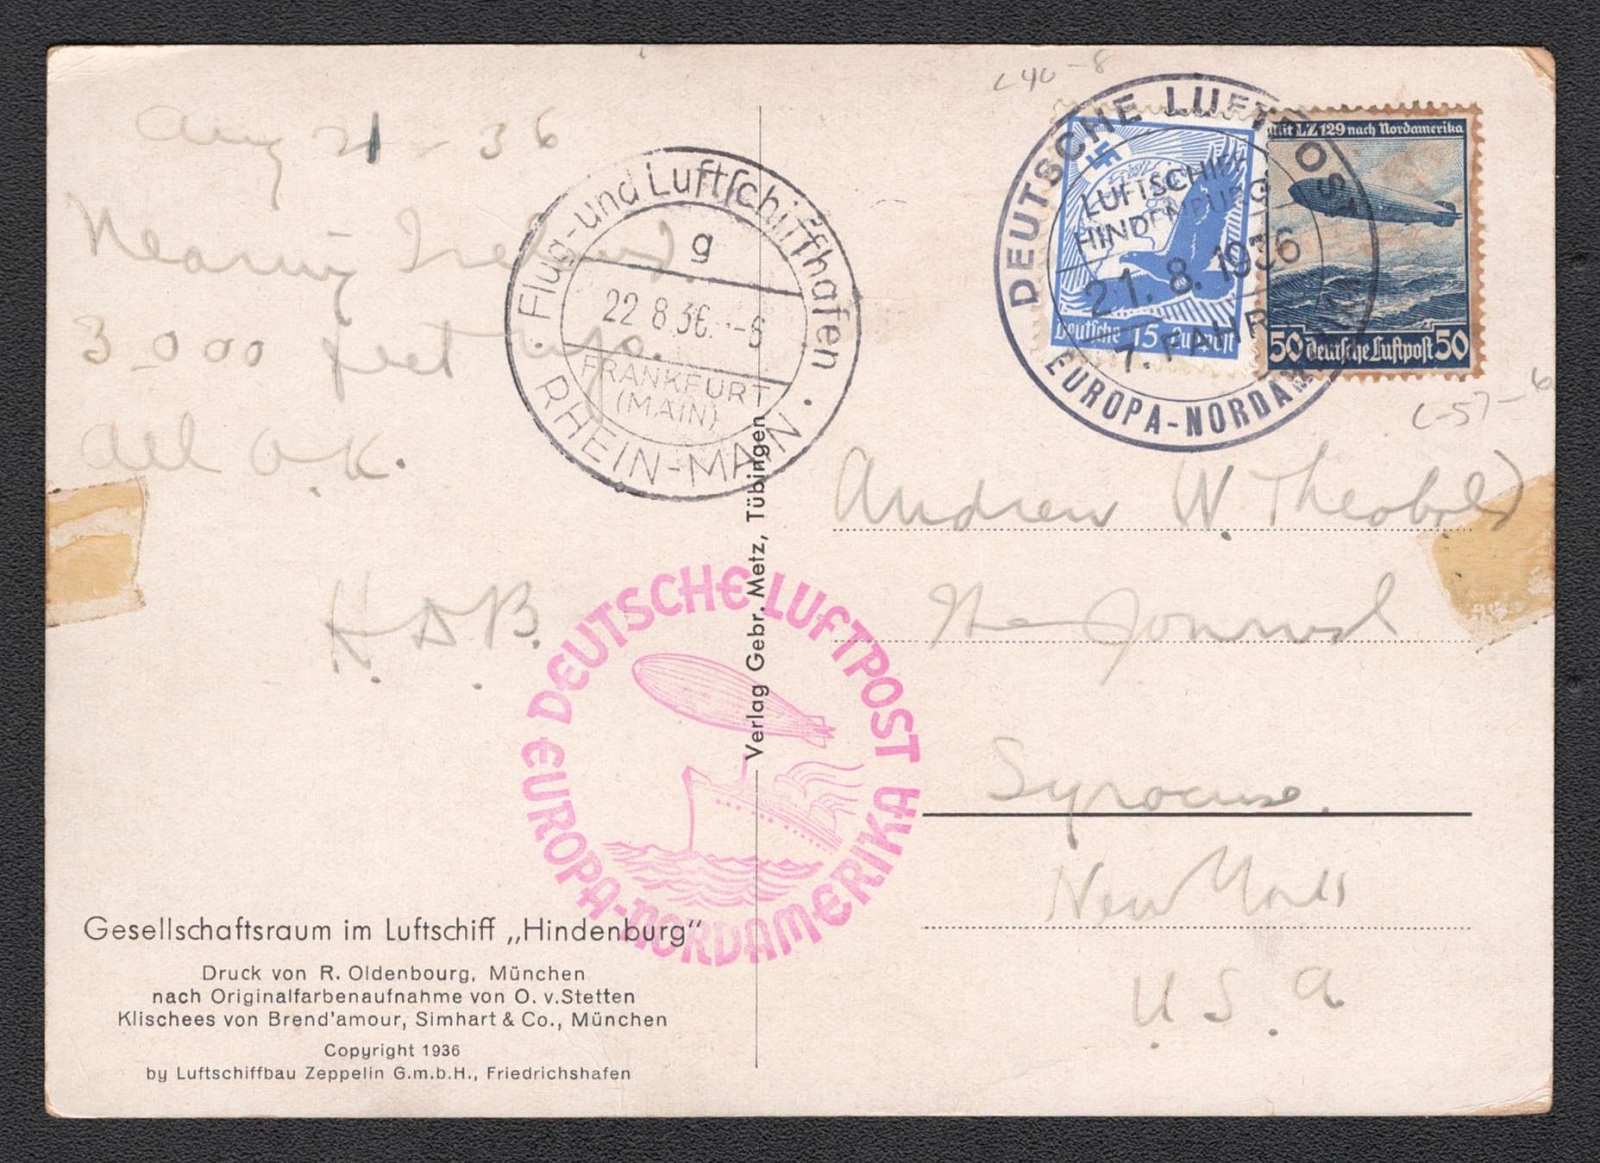 c 40-8
Aug 21 - 36
Nearing Ireland.
3000 feet up.
All O.K.
H.D.B.
Flug- und Luftschiffhafen
g
22 8.36.--6
FRANKFURT
(MAIN)
RHEIN-MAIN
DEUTSCHE LUFTPOST
LUFTSCHIFF
HINDENBURG
21.8.1936
7. FAHRT
EUROPA-NORDAM
Deutsche 15 Luftpost
mit LZ 129 nach Nordamerika
50 Deutsche Luftpost 50
C-57-6
Andrew W. Theobold
The Journal
Syracuse.
New York
U.S.A
DEUTSCHE LUFTPOST
EUROPA-NORDAMERIKA
Verlag Gebr. Metz, Tübingen
Gesellschaftsraum im Luftschiff „Hindenburg"
Druck von R. Oldenbourg, München
nach Originalfarbenaufnahme von O. v. Stetten
Klischees von Brend'amour, Simhart & Co., München
Copyright 1936
by Luftschiffbau Zeppelin G.m.b.H., Friedrichshafen